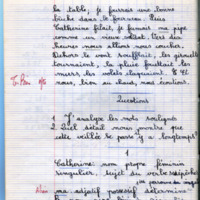 la table, je fourrais une bonne
bûche dans le fourneau. Puis
Catherine filait, je fumais ma pipe
comme un vieux soldat. Vers dix
heures nous allions nous coucher.
Dehors le vent soufflait, la girouette
tournoyait, la pluie fouettait les
murs, les volets claquaient. Et
nous, bien au chaud, nous écoutions.
T. Bien
Questions
1 J'analyse les mots soulignés
2 Quel détail nous montre que
cette veillée se passe il y a longtemps?
1
Catherine: nom propre féminin
singulier, sujet du verbe
ma: adjectif possessif détermine